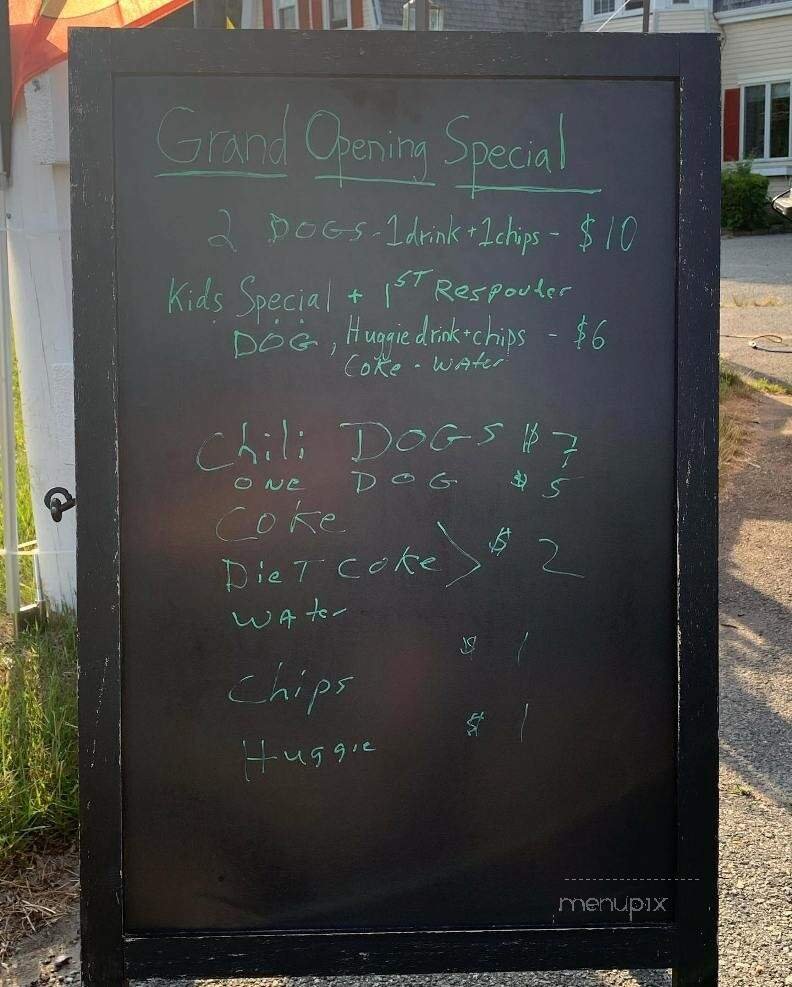 Grand Opening Special
2 DOGS - 1 drink + 1 chips - $10
Kids Special + 1ST Responder
DOG, Huggie drink + chips - $6
Coke - Water
Chili DOGS $7
ONE DOG $5
Coke
DieT Coke > $2
Water
$1
Chips
$1
Huggie
menupix